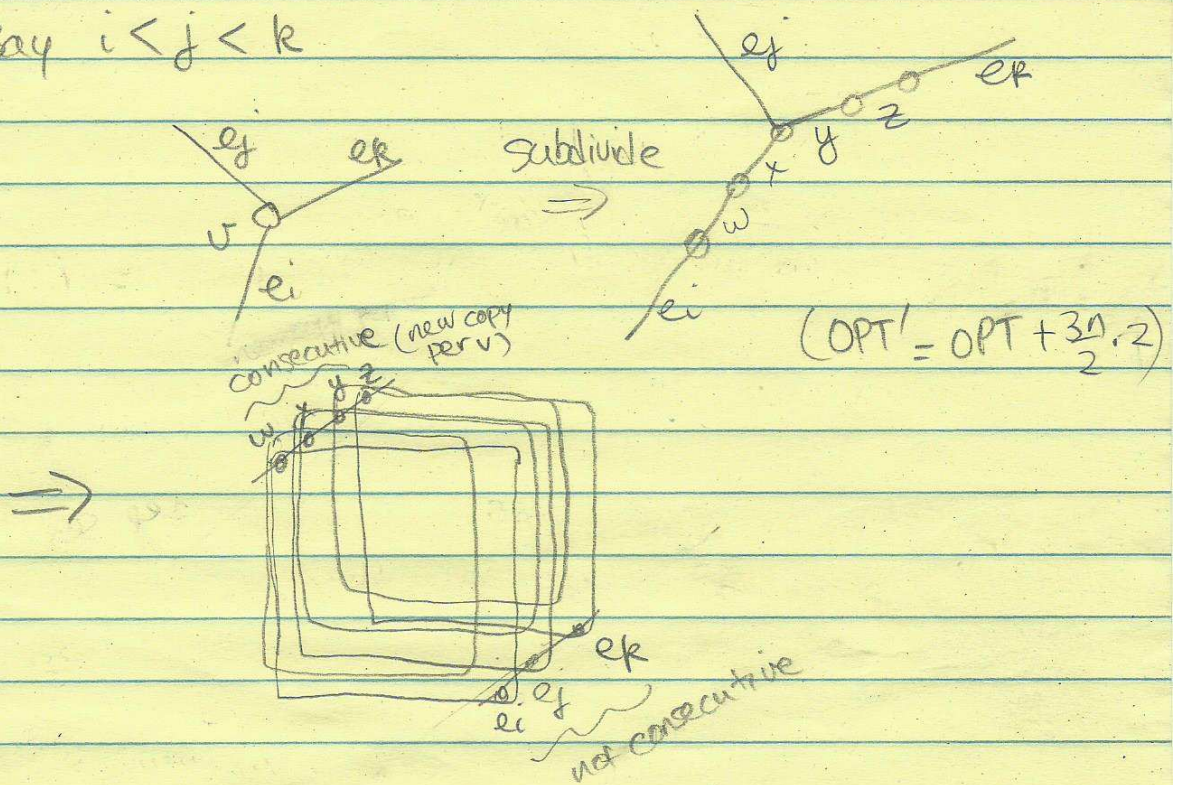 say i < j < k
ej
ek
v
ei
subdivide
⇒
ej
ek
z
y
x
w
ei
(OPT' = OPT + 3n/2 · 2)
consecutive (new copy
per v)
w x y z
⇒
ek
ej
ei
not consecutive